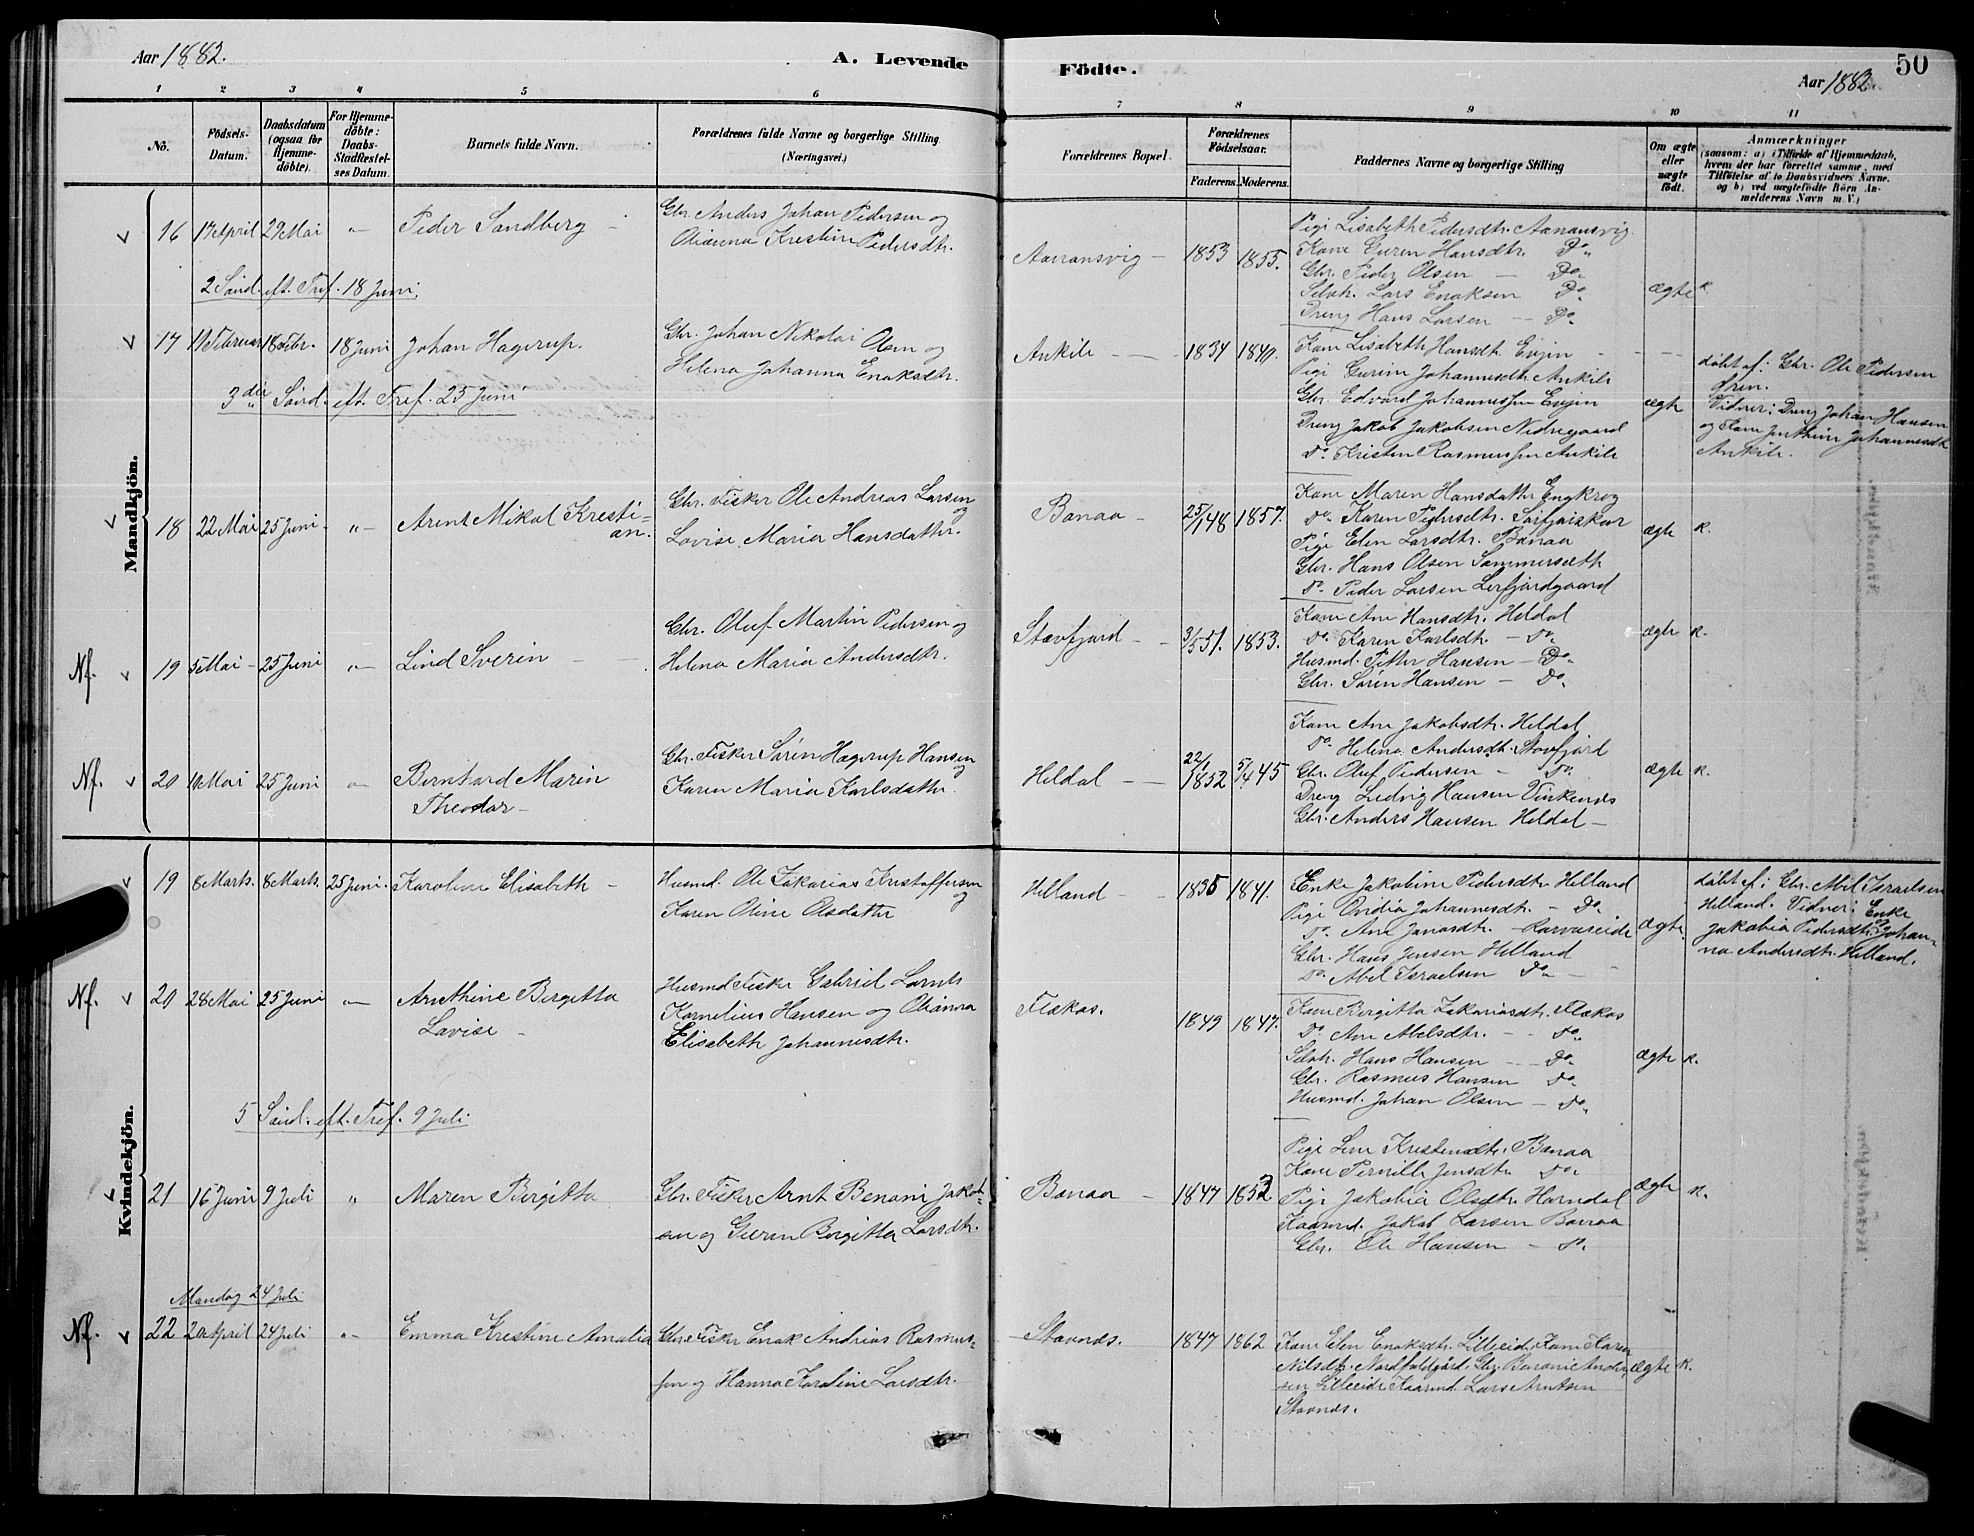 Aar 1882.
A. Levende
Födte.
Aar 1882.
50
1 2 3 4 5 6 7 8 9 10 11
No.
Födsels-Datum.
Daabsdatum (ogsaa for Hjemme-döbte).
For Hjemme-döbte: Daabs-Stadfæstel-ses Datum.
Barnets fulde Navn.
Forældrenes fulde Navne og borgerlige Stilling
(Næringsvei.)
Forældrenes Bopæl.
Forældrenes Födselsaar.
Faderens. Moderens.
Faddernes Navne og borgerlige Stilling
Om ægte eller uægte födt.
Anmærkninger
(saasom: a) i Tilfælde af Hjemmedaab,
hvem der har forrettet samme, med
Tilföielse af to Daabsvidners Navne.
og b) ved uægtefödte Börn An-
melderens Navn m. V.)
Mandkjön.
16 17 April 29 Mai "- Peder Sandberg -
Gbr. Anders Johan Pedersen og
Olianna Kristine Pedersdtr.
Aarransvig - 1853 1855.
Pige Lisabeth Pedersdtr. Aaransvig
Kone Guren Hansdtr. Do.
Gbr. Peder Olsen - Do.
Selvh. Lars Enoksen Do.
Dreng Hans Larsen - Do.
ægte k.
2 Sönd. eft. Tref. 18 Juni.
17 11 Februar 18 Febr. 18 Juni Johan Hagerup.
Gbr. Johan Nikolai Olsen og
Helena Johanna Enoksdtr.
Ankile - 1834 1840.
Kone Lisabeth Hansdtr. Evjen
Pige Guren Johannesdtr. Ankile
Gbr. Edvard Johannessen Evjen
Dreng Jakob Jakobsen Nedregaard
Do. Kristen Rasmussen Ankile
ægte
döbt af: Gbr. Ole Pedersen
Vidner: Dreng Johan Hansen
og Kone Johannesdtr.
Ankile.
3die Sönd. eft. Tref. 25 Juni
18 22 Mai 25 Juni - "- Arent Mikal Kristi=
an.
Gbr. Fisker Ole Andreas Larsen
og
Lovise Maria Hansdatter.
Bonaa - 25/1 48 1857.
Kone Maren Hansdatter Engkrog
Do. Karen Pedersdtr. Sörfjordskar
Pige Elen Larsdtr. Bonaa
Gbr. Hans Olsen Sommersæth
Do. Peder Larsen Lerfjordgaard
ægte k.
Nf. 19 5 Mai - 25 Juni "- Lind Sverin -
Gbr. Oluf Martin Pedersen og
Helena Maria Andersdtr.
Stavfjord - 3/5 51. 1853.
Kone Ane Hansdtr. Heldal
Do. Karen Karlsdtr. - Do.
Husmd. Petter Hansen - Do.
Gbr. Sören Hansen - Do.
ægte k.
Nf. 20 10 Mai 25 Juni "- Berntard Marin
Theodor -
Gbr. Fisker Sören Hagerup Hansen
og
Karen Maria Karlsdatter.
Heldal - 22/1 1852 5/4 45
Kone Ane Jakobsdtr. Heldal
Do. Helena Andersdtr. Stovfjord
Gbr. Oluf Pedersen - Do.
Dreng Ludvig Hansen Vinkenes
Gbr. Anders Hansen Heldal -
ægte k.
Kvindekjön.
19 8 Marts. 8 Marts. 25 Juni. Karoline Elisabeth -
Husmd. Ole Zakarias Kristoffersen
og
Karen Oline Olsdatter
Helland - 1835 1841.
Enke Jakobine Pedersdtr. Helland
Pige Ovidia Johannesdtr. - Do.
Do. Ane Jonasdtr. - Rørvaseide
Gbr. Hans Jensen Helland
Do. Abel Israelsen Do. -
ægte
döbt af: Gbr. Abel Israelsen
Helland. Vidner: Enke
Jakobia Pedersdtr. og Johan-
na Andersdtr. Helland.
Nf. 20 28 Mai 25 Juni "- Arnthine Birgitta
Lovise -
Husmd Fisker Gabriel Lornts
Kornelius Hansen og Olianna
Elisabeth Johannesdtr.
Flækos. 1849 1847.
Kone Birgitta Zakariasdtr. Flækos
Do. Ane Abelsdtr. - Do.
Selvh. Hans Hansen - Do.
Gbr. Rasmus Hansen Do.
Husmd. Johan Olsen - Do.
ægte k.
5 Sönd. eft. Tref. 9 Juli
21 16 Juni 9 Juli " Maren Birgitta
Gbr. Fisker Arnt Benoni Jakob-
sen og Guren Birgitta Larsdtr.
Bonaa - 1847 1852
Pige Lene Kristensdtr. Bonaa
Kone Pernille Jensdtr. Do.
Pige Jakobia Olsdtr. Horndal
Kaarmd. Jakob Larsen Bonaa
Gbr. Ole Hansen - Do.
ægte k.
Mandag 24 Juli
Nf. 22 20 April 24 Juli "- Emma Kristine Amalia
Gbr. Fisker Enok Andreas Rasmus-
sen og Hanna Karoline Larsdtr.
Stavnes. 1847 1862
Kone Elen Enoksdtr. Lilleeide, Kone Karen
Nilsdtr. Nordfoldgård. Gbr. Benoni Ander-
sen Lilleeide Kaarmd. Lars Arntsen
Stavnes.
ægte k.